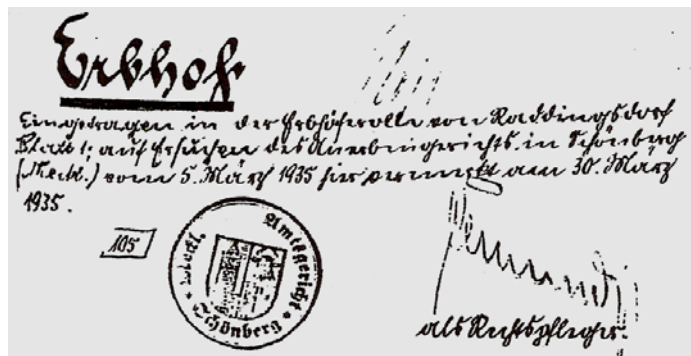 Erbhof.
Eingetragen in der Erbhöferolle von Raddingsdorf
Blatt 1; auf Ersuchen des Anerbengerichts in Schönberg
(Meckl.) vom 5. März 1935 hier vermerkt am 30. März
1935.
105
Meckl. Amtsgericht
* Schönberg *
als Rechtspfleger.